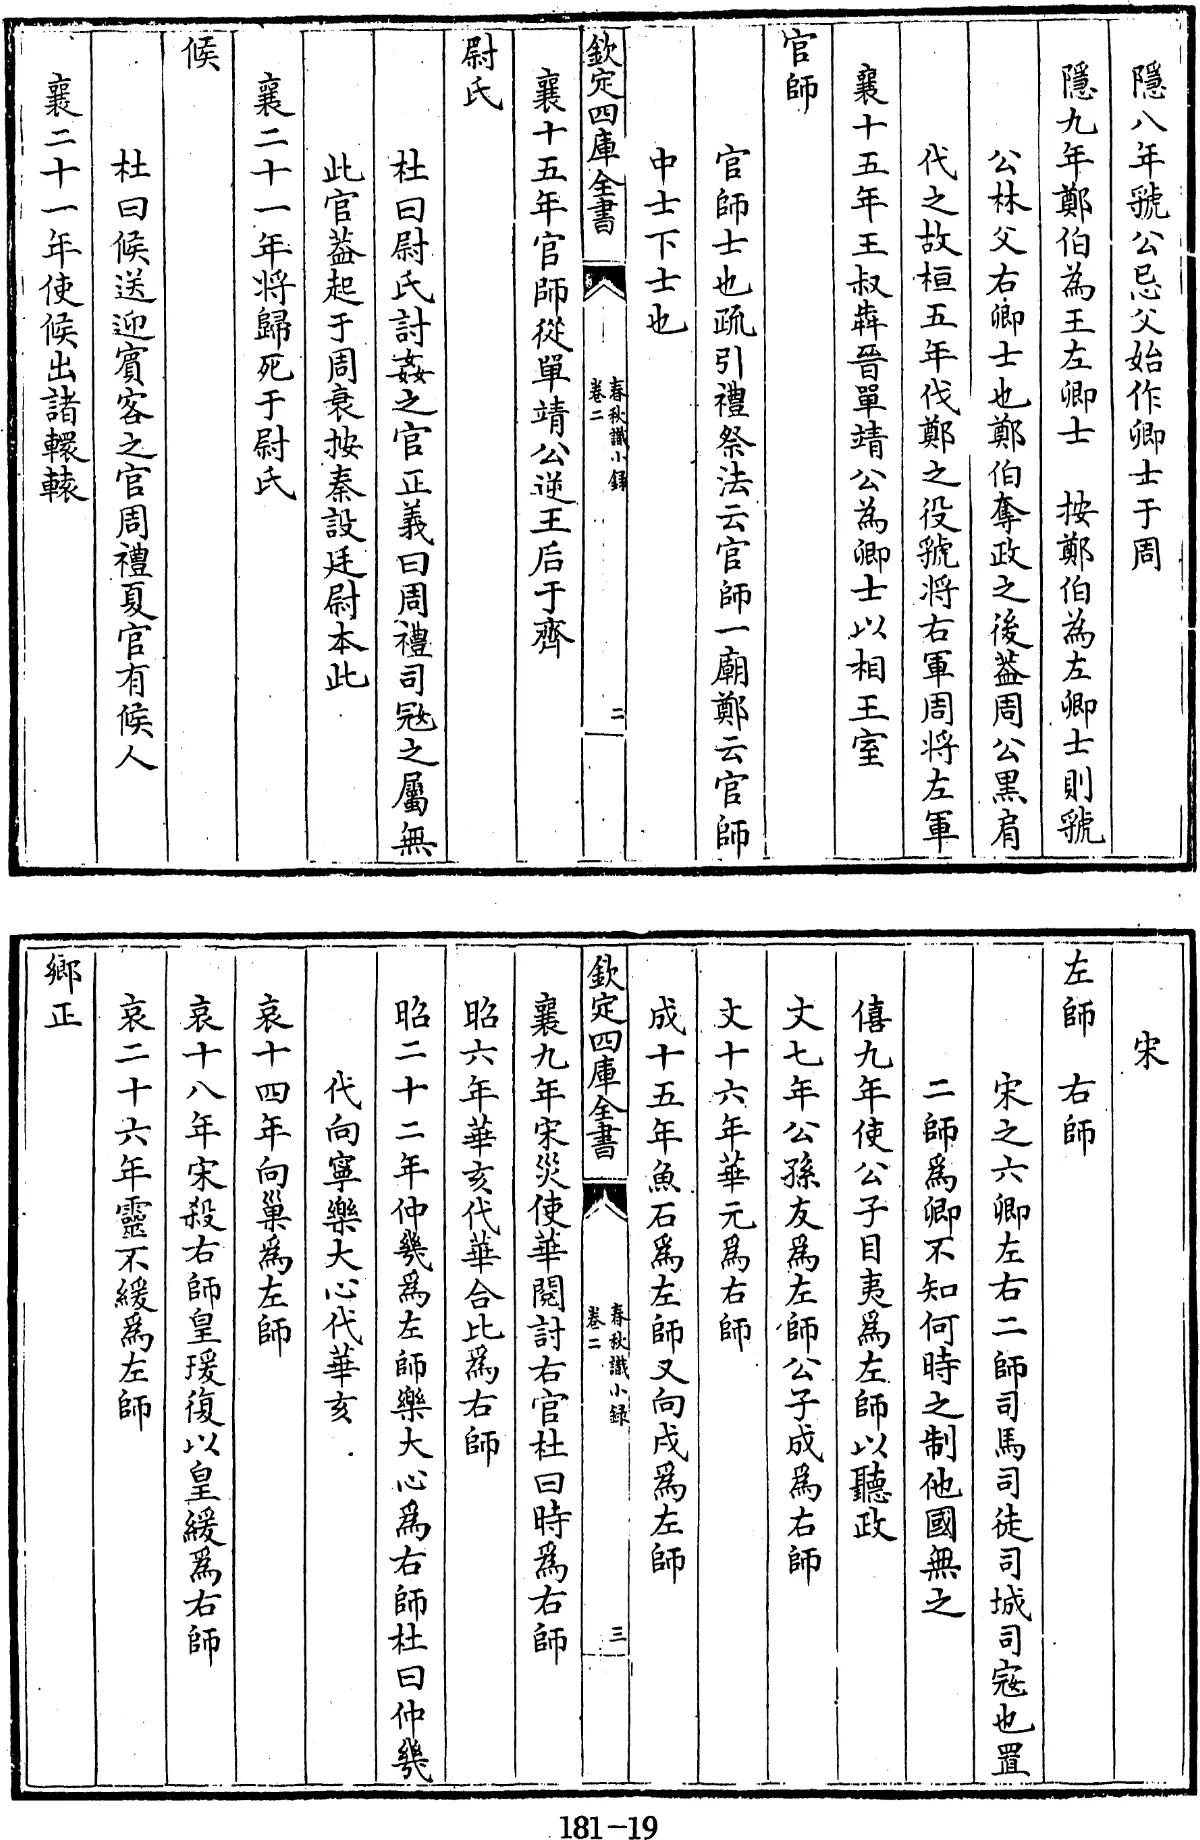 隱八年虢公忌父始作卿士于周
隱九年鄭伯為王左卿士　按鄭伯為左卿士則虢
公林父右卿士也鄭伯奪政之後葢周公黒肩
代之故桓五年伐鄭之役虢将右軍周将左軍
襄十五年王叔奔晉單靖公為卿士以相王室
官師
官師士也疏引禮祭法云官師一廟鄭云官師
中士下士也
欽定四庫全書
春秋識小錄
卷二
二
襄十五年官師從單靖公逆王后于齊
尉氏
杜曰尉氏討姦之官正義曰周禮司宼之屬無
此官葢起于周衰按秦設廷尉本此
襄二十一年将歸死于尉氏
候
杜曰候送迎賓客之官周禮夏官有候人
襄二十一年使候出諸轘轅
宋
左師　右師
宋之六卿左右二師司馬司徒司城司宼也置
二師爲卿不知何時之制他國無之
僖九年使公子目夷爲左師以聽政
文七年公孫友爲左師公子成爲右師
文十六年華元爲右師
成十五年魚石爲左師又向戌爲左師
欽定四庫全書
春秋識小録
卷二
三
襄九年宋災使華閱討右官杜曰時爲右師
昭六年華亥代華合比爲右師
昭二十二年仲幾爲左師樂大心爲右師杜曰仲幾
代向寧樂大心代華亥
哀十四年向巢爲左師
哀十八年宋殺右師皇瑗復以皇緩爲右師
哀二十六年靈不緩爲左師
鄉正
181-19